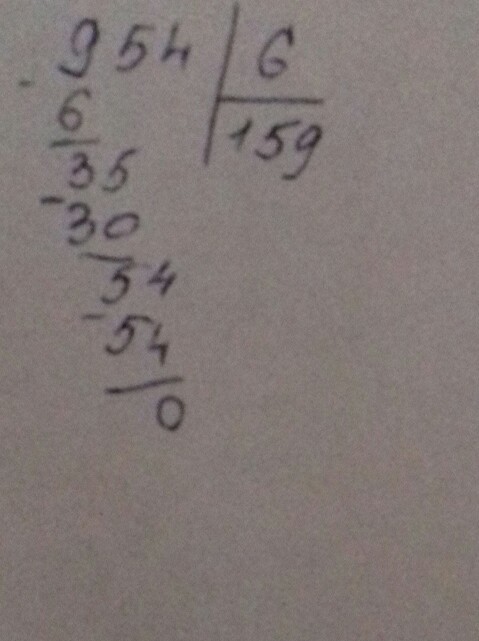 954 6
- 6 159
35
- 30
54
- 54
0